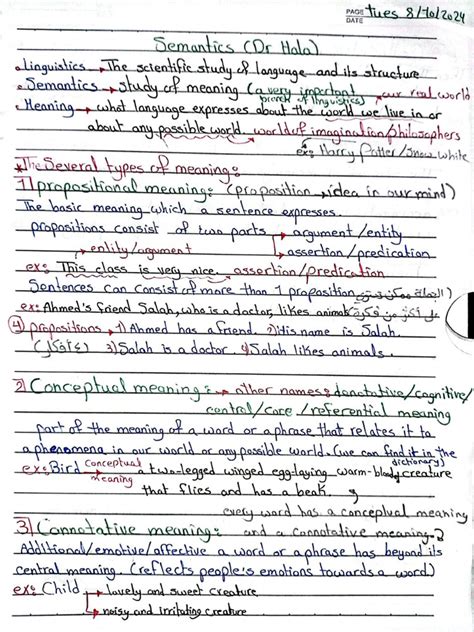 PAGE DATE Tues 8/10/2024
Semantics (Dr Hala)
• Linguistics → The scientific study of language and its structure
• Semantics → study of meaning (a very important branch of linguistics) → our real world
• Meaning → what language expresses about the world we live in or
about any possible world. world of imagination/philosophers
ex: Harry Potter/Snow white
* The Several types of meaning:
1) propositional meaning: (proposition → idea in our mind)
The basic meaning which a sentence expresses.
propositions consist of two parts → argument/entity
→ assertion/predication
→ entity/argument
ex: This class is very nice. assertion/predication
Sentences can consist of more than 1 proposition (الجملة ممكن
ex: Ahmed's friend Salah, who is a doctor, likes animals أكثر من فكرة)
4 propositions → 1) Ahmed has a friend. 2) His name is Salah.
(٤ أفكار) 3) Salah is a doctor. 4) Salah likes animals.
2) Conceptual meaning: → other names: denotative/cognitive/
central/core/referential meaning
part of the meaning of a word or a phrase that relates it to
a phenomena in our world or any possible world. (we can find it in the dictionary)
ex: Bird conceptual meaning → two-legged winged egg-laying warm-bloody creature
that flies and has a beak.
every word has a conceptual meaning
3) Connotative meaning: and a connotative meaning
Additional/emotive/affective a word or a phrase has beyond its
central meaning. (reflects people's emotions towards a word)
ex: Child → lovely and sweet creature
→ noisy and irritating creature